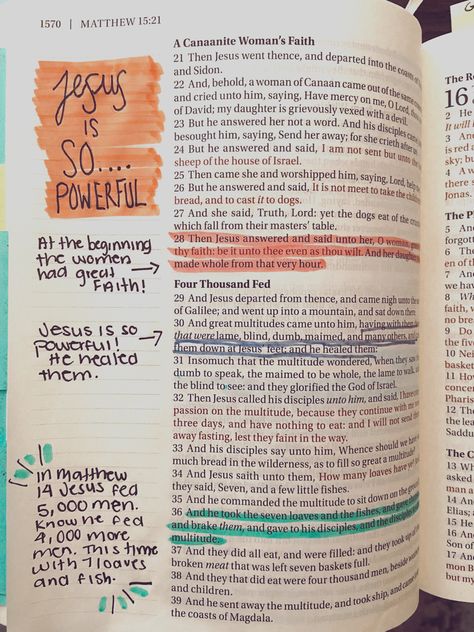 1570 | MATTHEW 15:21
Jesus
is
SO....
POWERFUL
At the beginning
the women
had great
FAITH!
Jesus is so
powerful!
He healed
them.
In Matthew
14 Jesus fed
5,000 men.
Know he fed
4,000 more
men. This time
with 7 loaves
and fish.
A Canaanite Woman's Faith
21 Then Jesus went thence, and departed into the coasts of
and Sidon.
22 And, behold, a woman of Canaan came out of the same
and cried unto him, saying, Have mercy on me, O Lord,
of David; my daughter is grievously vexed with a devil.
23 But he answered her not a word. And his disciples came
besought him, saying, Send her away; for she crieth after
24 But he answered and said, I am not sent but unto the
sheep of the house of Israel.
25 Then came she and worshipped him, saying, Lord, help
26 But he answered and said, It is not meet to take the
bread, and to cast it to dogs.
27 And she said, Truth, Lord: yet the dogs eat of the
which fall from their masters' table.
28 Then Jesus answered and said unto her, O woman,
thy faith: be it unto thee even as thou wilt. And her
made whole from that very hour.
Four Thousand Fed
29 And Jesus departed from thence, and came nigh unto the
of Galilee; and went up into a mountain, and sat down
30 And great multitudes came unto him, having with them
that were lame, blind, dumb, maimed, and many others, and
them down at Jesus' feet; and he healed them:
31 Insomuch that the multitude wondered, when they saw
dumb to speak, the maimed to be whole, the lame to walk,
the blind to see: and they glorified the God of Israel.
32 Then Jesus called his disciples unto him, and said, I have
passion on the multitude, because they continue with me
three days, and have nothing to eat: and I will not send
away fasting, lest they faint in the way.
33 And his disciples say unto him, Whence should we have
much bread in the wilderness, as to fill so great a multitude?
34 And Jesus saith unto them, How many loaves have ye?
they said, Seven, and a few little fishes.
35 And he commanded the multitude to sit down on the
36 And he took the seven loaves and the fishes, and gave
and brake them, and gave to his disciples, and the disciples
multitude.
37 And they did all eat, and were filled: and they took up
broken meat that was left seven baskets full.
38 And they that did eat were four thousand men, beside
and children.
39 And he sent away the multitude, and took ship, and came
the coasts of Magdala.
The
16